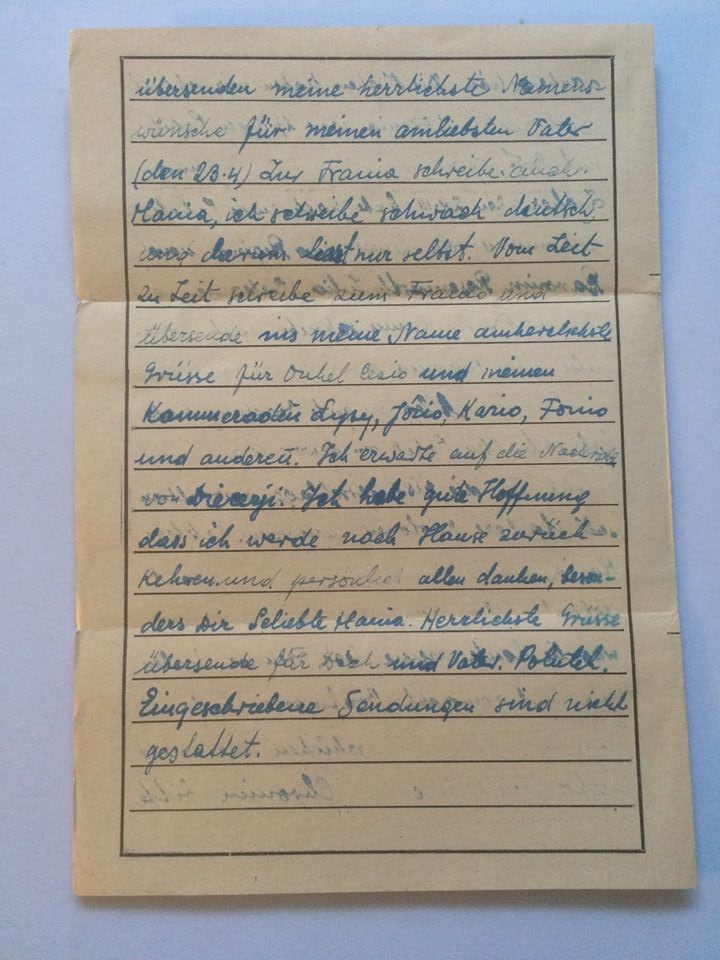 übersenden meine herrlichste Namens
wünsche für meinen amliebsten Vater
(den 23.4) Zur Frania schreibe auch.
Hania, ich schreibe schwach deutsch,
und darum liest nur selbst. Vom Zeit
zu Zeit schreibe zum Franio und
übersende ins meine Name amherzlichste
Grüsse für Onkel Cesio und meinen
Kammeraden Lysy, Jório, Kario, Fonio
und anderen. Ich erwarte auf die Nachricht
von Diecezji. Ich habe gute Hoffnung
dass ich werde nach Hause zurück
kehren und persönlich allen danken, beson-
ders Dir Geliebte Hania. Herrlichste Grüsse
übersende für Dich und Vater.
Eingeschriebene Sendungen sind nicht
gestattet.